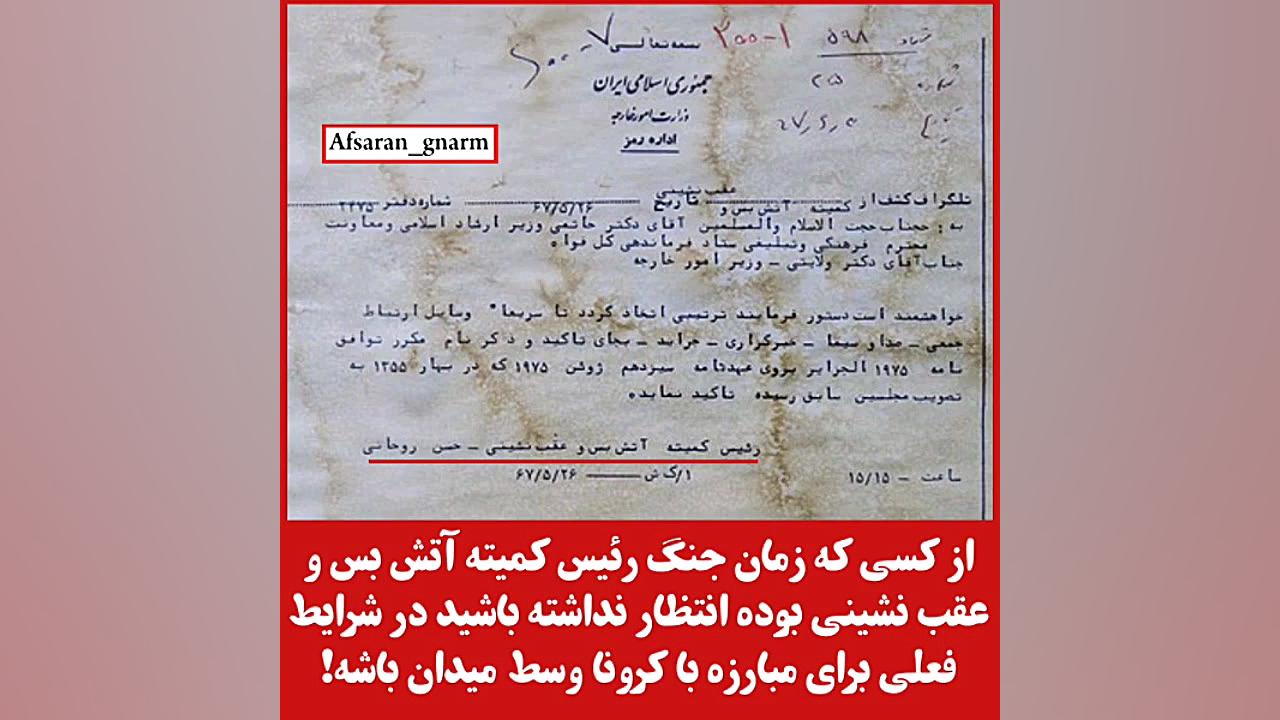 بسمه تعالی
۲۰۰-۱
۵۹۸
جمهوری اسلامی ایران
وزارت امور خارجه
اداره رمز
۲۵
Afsaran_gnarm
تلگراف کشف از کمیته آتش بس و عقب نشینی تاریخ ۶۷/۵/۲۶ شماره دفتر ۲۴۷۵
به : جناب حجت الاسلام والمسلمین آقای دکتر خاتمی وزیر ارشاد اسلامی ومعاونت
محترم فرهنگی وتبلیغی ستاد فرماندهی کل قوا ه
جناب آقای دکتر ولایتی ـ وزیر امور خارجه
خواهشمند است دستور فرمایند ترتیبی اتخاذ گردد تا سریعا" وسایل ارتباط
جمعی ـ صدا و سیما ـ خبرگزاری ـ جراید ـ بجای تاکید و ذکر نام مکرر توافق
نامه ۱۹۷۵ الجزایر بروی عهدنامه سیزدهم ژوئن ۱۹۷۵ که در بهار ۱۳۵۵ به
تصویب مجلسین سابق رسیده تاکید نمایده
رئیس کمیته آتش بس و عقب نشینی ـ حسن روحانی
ساعت ـ ۱۵/۱۵ ۱/ک ش ـــــ ۶۷/۵/۲۶
از کسی که زمان جنگ رئیس کمیته آتش بس و
عقب نشینی بوده انتظار نداشته باشید در شرایط
فعلی برای مبارزه با کرونا وسط میدان باشه!